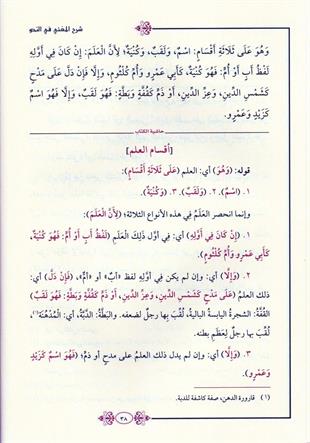 شرح المغني في النحو
وَهُوَ عَلَى ثَلَاثَةِ أَقْسَامٍ: اسْمٌ، وَلَقَبٌ، وَكُنْيَةٌ؛ لِأَنَّ الْعَلَمَ: إِنْ كَانَ فِي أَوَّلِهِ
لَفْظُ أَبٍ أَوْ أُمٍّ: فَهُوَ كُنْيَةٌ، كَأَبِي عَمْرٍو وَأُمِّ كُلْثُومٍ، وَإِلَّا فَإِنْ دَلَّ عَلَى مَدْحٍ
كَشَمْسِ الدِّينِ، وَعِزِّ الدِّينِ، أَوْ ذَمٍّ كَقُفَّةٍ وَبَطَّةٍ: فَهُوَ لَقَبٌ، وَإِلَّا فَهُوَ اسْمٌ
كَزَيْدٍ وَعَمْرٍو.
حاشية الكتاب
[أقسام العلم]
قوله: (وَهُوَ) أي: العلم (عَلَى ثَلَاثَةِ أَقْسَامٍ):
١. (اسْمٌ). ٢. (وَلَقَبٌ). ٣. (وَكُنْيَةٌ).
وإنما انحصر العَلَمُ فِي هذه الأنواع الثلاثة؛ (لِأَنَّ الْعَلَمَ):
١. (إِنْ كَانَ فِي أَوَّلِهِ) أي: فِي أوَّل ذلك العَلَمِ (لَفْظُ أَبٍ أَوْ أُمٍّ: فَهُوَ كُنْيَةٌ،
كَأَبِي عَمْرٍو وَأُمِّ كُلْثُومٍ).
٢. (وَإِلَّا) أي: وإن لم يكن فِي أوَّلِهِ لفظ «أبٌ» أو «أمٌّ»، (فَإِنْ دَلَّ) أي:
ذلك العلمُ (عَلَى مَدْحٍ كَشَمْسِ الدِّينِ، وَعِزِّ الدِّينِ، أَوْ ذَمٍّ كَقُفَّةٍ وَبَطَّةٍ: فَهُوَ لَقَبٌ)
القُفَّةُ: الشجرة اليابسة البالية، لُقِّبَ بها رجلٌ لضعفه. والبَطَّةُ: الدَّبَّةُ، أي: الْمُدْهُنَةُ(١)،
لُقِّبَ بها رجلٌ لِعظَمِ بطنه.
٣. (وَإِلَّا) أي: وإن لم يدل ذلك العلمُ على مدحٍ أو ذمٍّ؛ (فَهُوَ اسْمٌ كَزَيْدٍ
وَعَمْرٍو).
(١) قارورة الدهن، صفة كاشفة للدبة.
٣٨